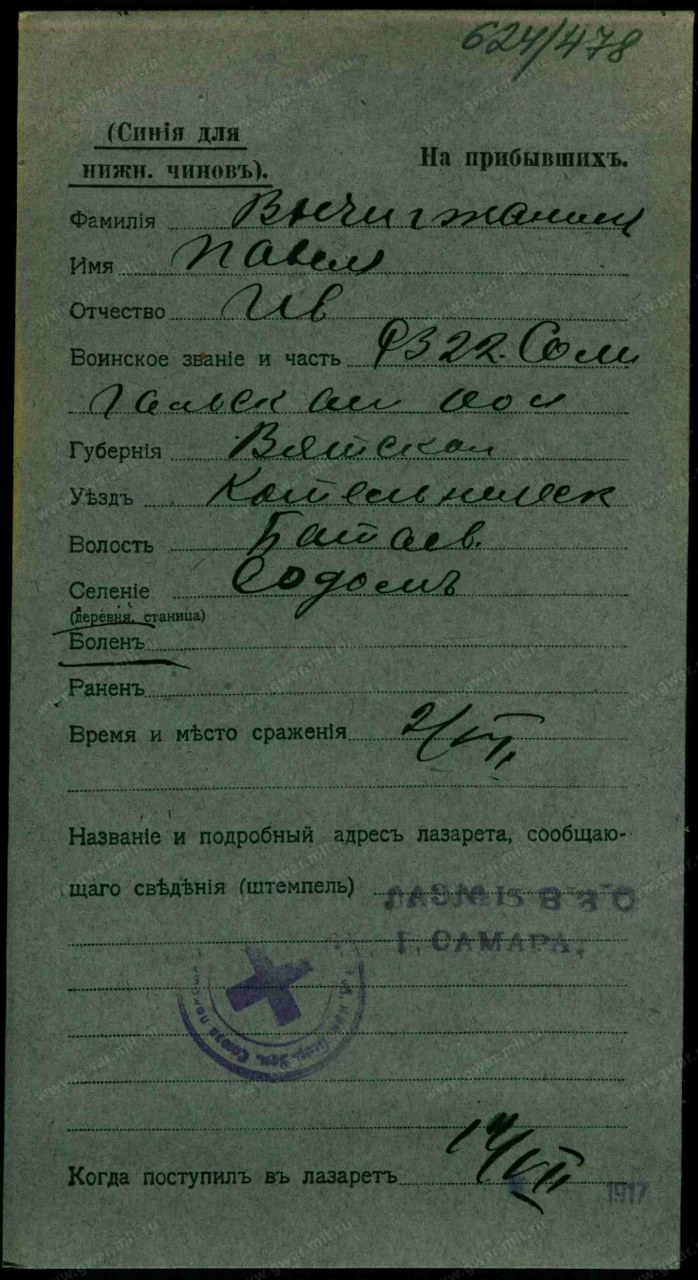 624/478
(Синія для
нижн. чиновъ).
На прибывшихъ.
Фамилія Вычигжанин
Имя Павел
Отчество Ив
Воинское званіе и часть Р322. Соли
галоскаи пол
Губернія Вятская
Уѣздъ Котельническ
Волость Батаев.
Селеніе Содомъ
(деревня, станица)
Боленъ
Раненъ
Время и мѣсто сраженія 2/VII
Названіе и подробный адресъ лазарета, сообщаю-
щаго свѣдѣнія (штемпель)
Г. САМАРА.
Когда поступилъ въ лазаретъ 14/VII 1917